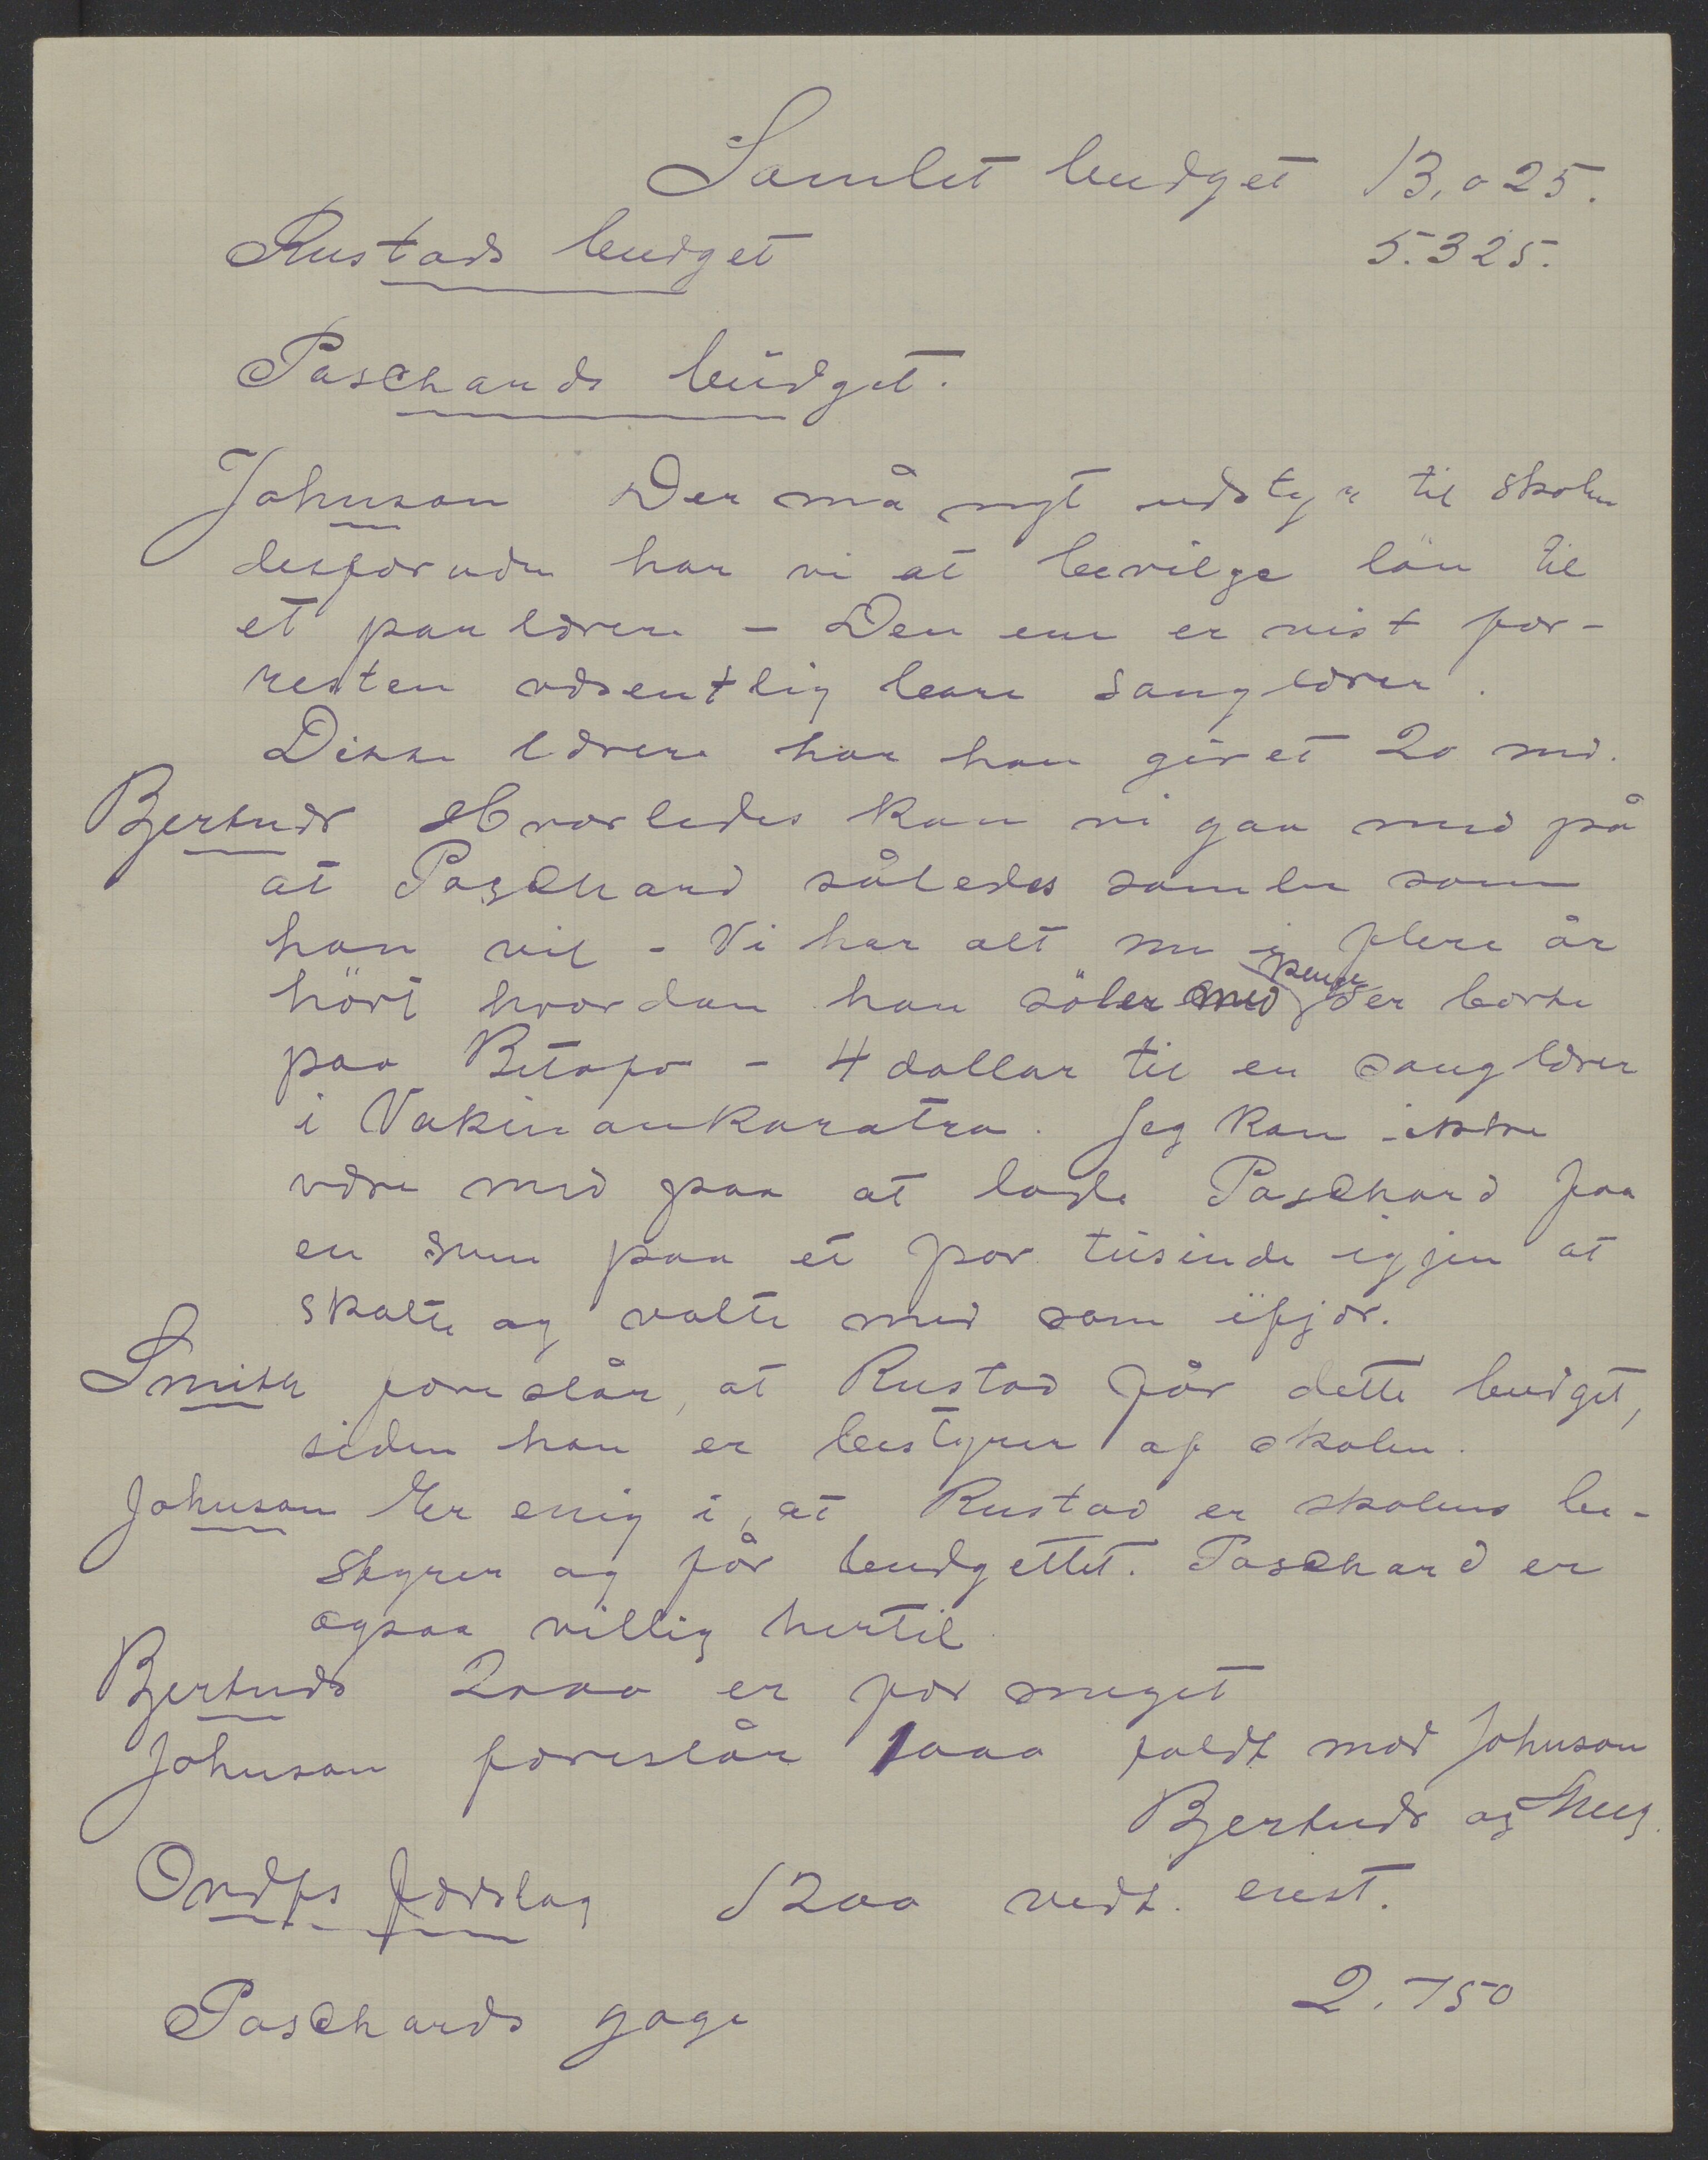 Samlet budget 13,025.
Rustads budget 5.325.
Paschards budget.
Johnson Der må nyt udstyr til skolen
desforuden har vi at bevilge lön til
et par lærere – Den ene er vist for-
resten væsentlig bare sanglærer.
Disse lærere har han givet 20 md.
Bjertnæs Hvorledes kan vi gaa med på
at Paschard således samler som
han vil – Vi har alt nu i flere år
hört hvordan han söler med penge der borte
paa Betafo – 4 dollar til en sanglærer
i Vakinankaratra. Jeg kan ikke
være med paa at lade Paschard faa
en sum paa et par tusinde igjen at
skalte og valte med som ifjor.
Smith foreslår, at Rustad får dette budget,
siden han er bestyrer af skolen.
Johnson Er enig i, at Rustad er skolens be-
styrer og får budgettet. Paschard er
ogsaa villig hertil
Bjertnæs 2000 er for meget
Johnson foreslår 1000 faldt mod Johnson
Bjertnæs og
Ordfs forslag 1200 vedt. enst.
Paschards gage 2.750